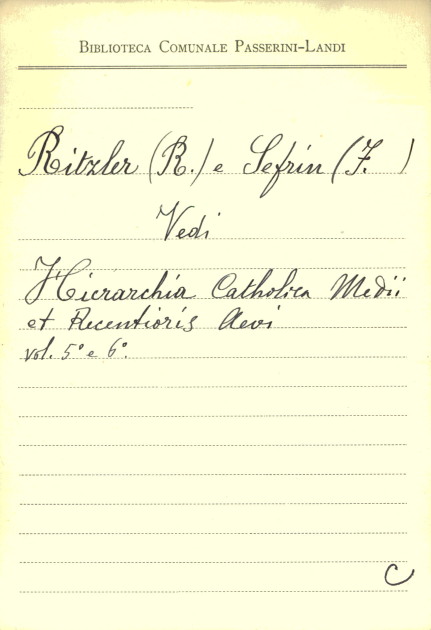 BIBLIOTECA COMUNALE PASSERINI-LANDI
Ritzler (R.) e Sefrin (F. )
Vedi
Hierarchia Catholica Medii
et Recentioris Aevi
vol. 5° e 6°.
C